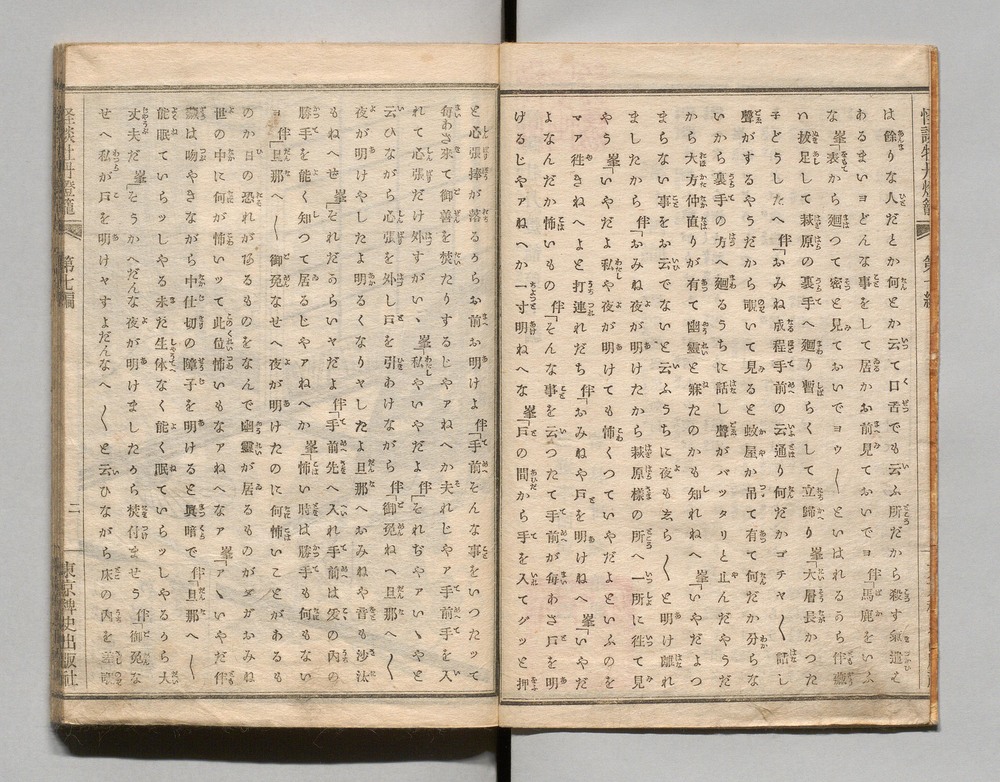 は餘りな人だとか何とか云て口舌でも云ふ所だから殺す氣遣は
あるまいヨどんな事をして居かお前見ておいでヨ伴「馬鹿をいふ
な峯「表から廻つて密と見ておいでヨウ〳〵といはれるから伴藏
い拔足して萩原の裏手へ廻り暫らくして立歸り峯「大層長かつた
子どうしたへ伴「おみね成程手前の云通り何だかゴチャ〳〵話し
聲がするやうだから覗いて見ると蚊屋が吊て有て何だか分らな
いから裏手の方へ廻るうちに話し聲がパッタリと止んだやうだ
から大方仲直りが有て幽靈と寐たのかも知れねへ峯「いやだよつ
まらない事をお云でないと云ふうちに夜も玄ら〳〵と明け離れ
ましたから伴「おみねや夜が明けたから萩原樣の所へ一所に徃て見
やう峯「いやだよ私や夜が明けても怖くつていやだよといふのを
マァ徃きねへよと打連れだち伴「おみねや戸を明けねへ峯「いやだ
よなんだか怖いもの伴「そんな事を云つたて手前が毎あさ戸を明
けるじやァねへか一寸明ねへな峯「戸の間から手を入てグッと押
と心張捧が落るからお前お明けよ伴「手前そんな事をいつたッて
毎あさ來て御膳を焚たりするじやァねへか夫れじやァ手前手を入
れて心張だけ外すがいゝ峯「私やいやだよ伴「それぢやァいゝやと
云ひながら心張を外し戸を引あけながら伴「御免ねへ旦那へ〳〵
夜が明けやしたよ明るくなりやしたよ旦那へおみねや音も沙汰
もねへぜ峯「それだからいヤだよ伴「手前先へ入れ手前は爰の內の
勝手を能く知つて居るじやァねへか峯「怖い時は勝手も何もない
ヨ伴「旦那へ〳〵御免なせへ夜が明けたのに何怖いことがあるも
のか日の恐れが
世の中に何が怖いッて此位怖いもなァねへなァ峯「アヽいやだ伴
藏は呟やきながら中仕切の障子を明けると眞暗で伴「旦那へ〳〵
能眠ていらッしやる未だ生体なく能く眠ていらッしやるから大
丈夫だ峯「そうかへだんな夜が明けましたから焚付ませう伴「御免な
せへ私が戸を明けヤすよだんなへ〳〵と云ひながら床の內を差覗
怪談牡丹燈籠
第七編
二
東京稗史出版社